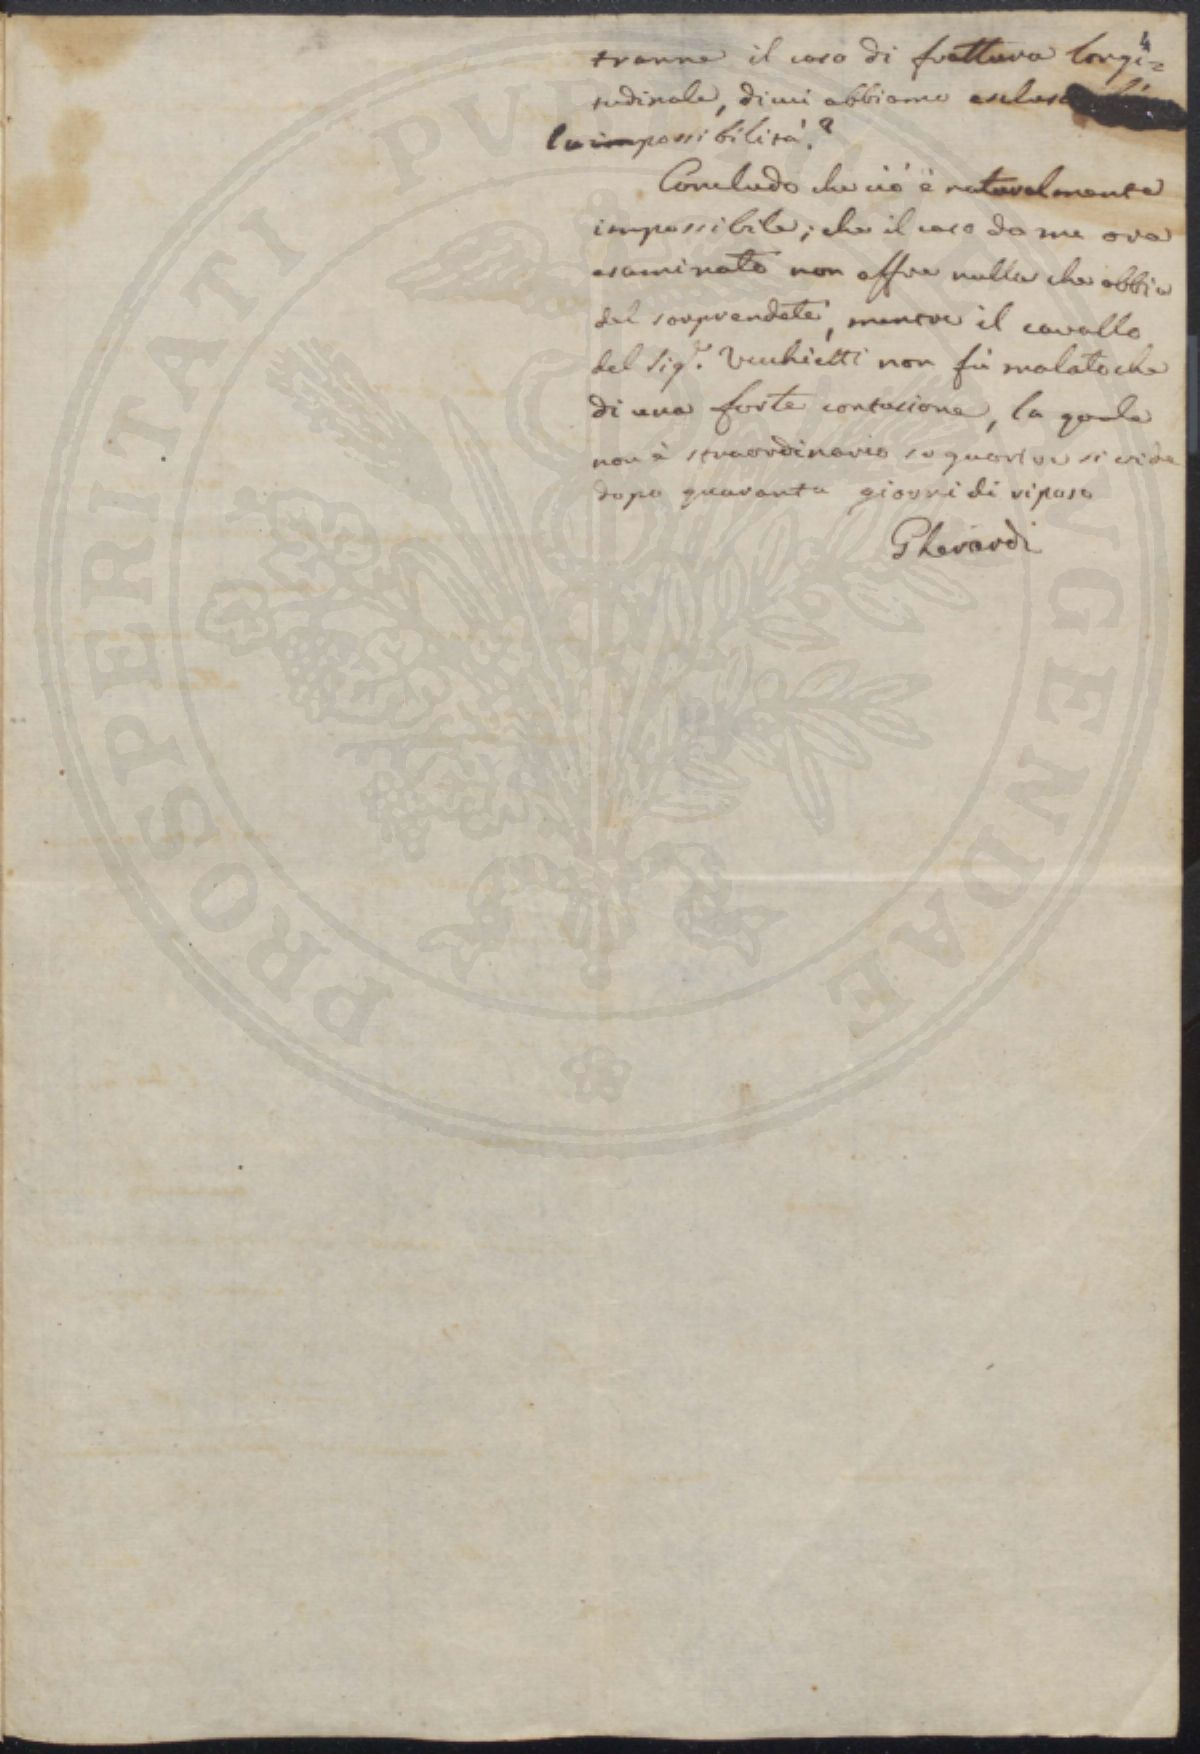 4
tranne il caso di frattura longi=
tudinale, di cui abbiamo esclusa
la impossibilità.?
Concludo che ciò è naturalmente
impossibile; che il caso da me ora
esaminato non offre nulla che abbia
del sorprendete, mentre il cavallo
del Sig.r Vecchietti non fù malato che
di una forte contusione, la quale
non è straordinario se guarire si vide
dopo quaranta giorni di riposo
Gherardi
PROSPERITATI PVBLICAE AVGENDAE